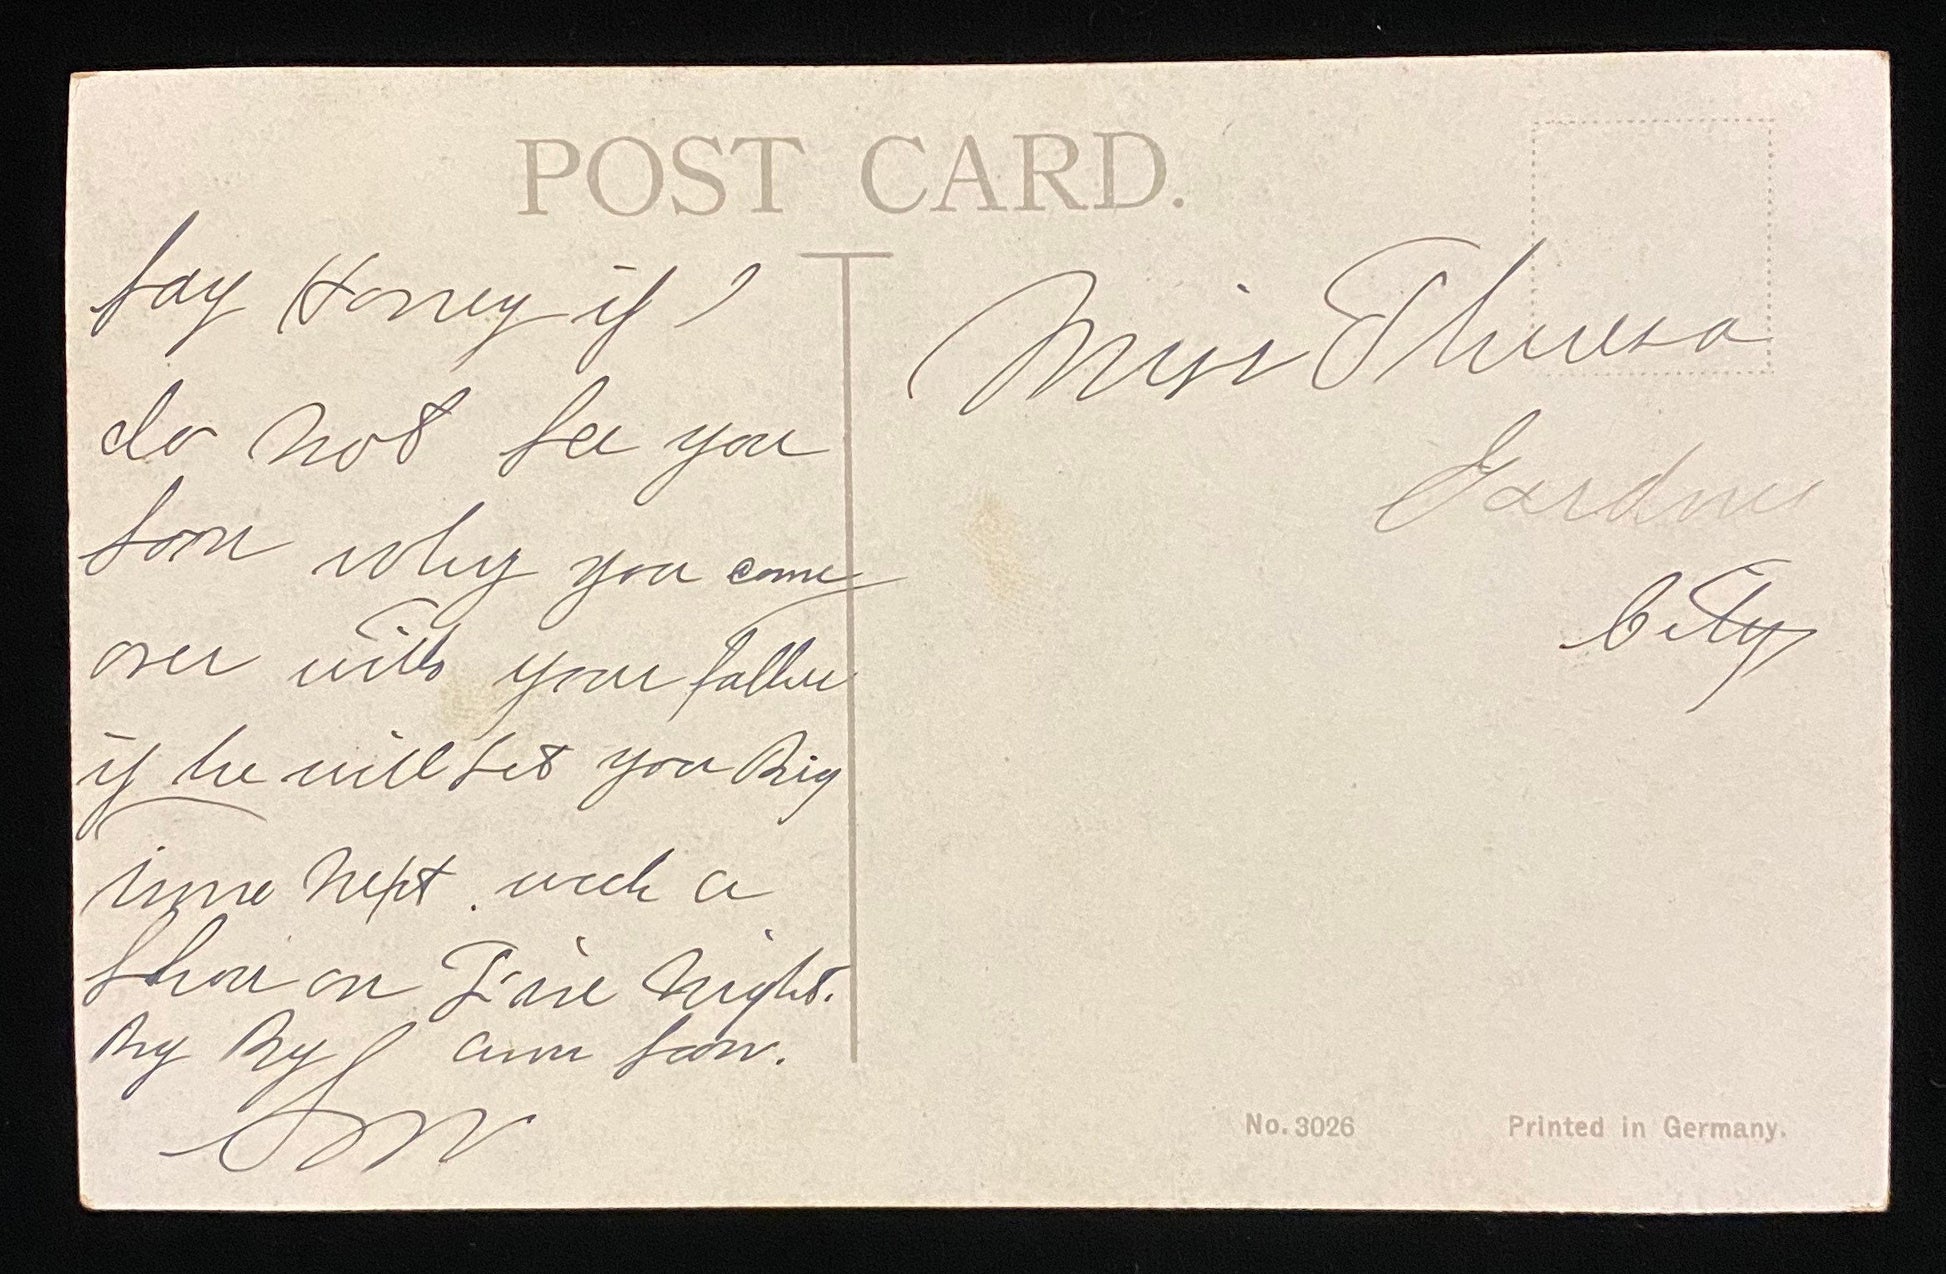 POST CARD.
Say Honey if I
do not see you
soon why you come
over with your father
if he will let you Big
time next week a
show on night.
By By ans soon.
Miss Theresa
Gardner
City
No. 3026
Printed in Germany.